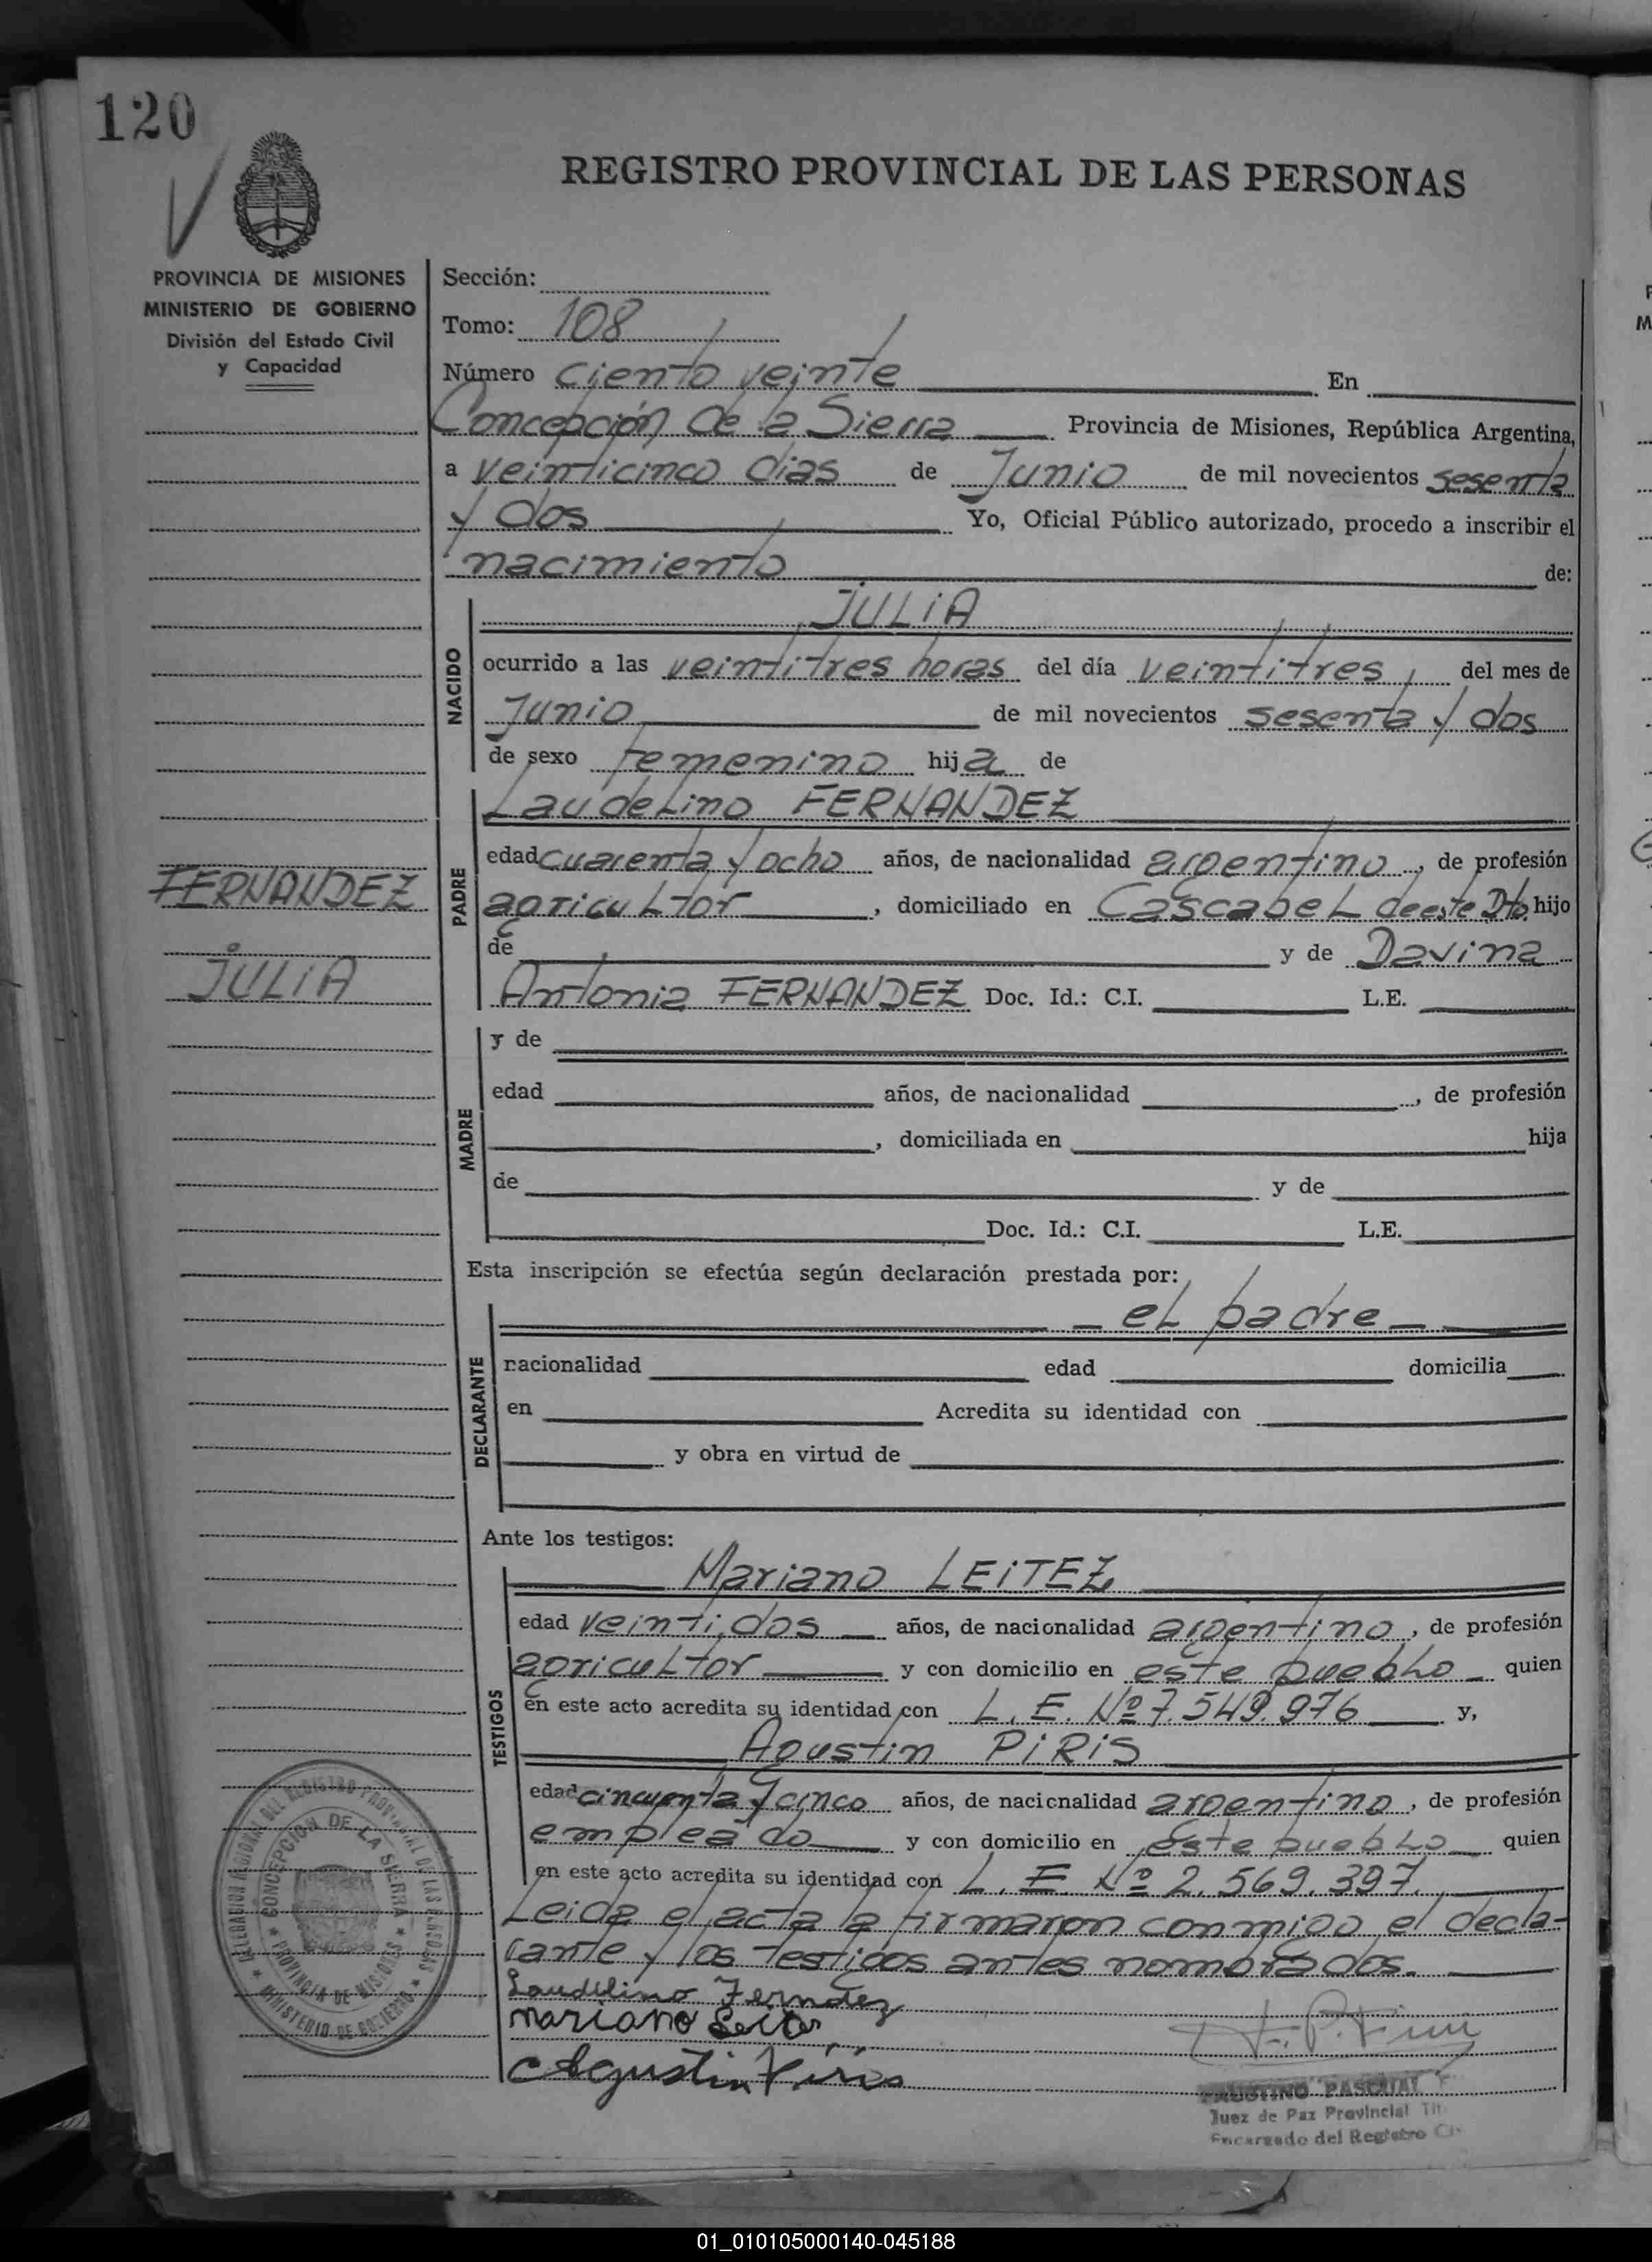 120
REGISTRO PROVINCIAL DE LAS PERSONAS
PROVINCIA DE MISIONES
MINISTERIO DE GOBIERNO
División del Estado Civil
y Capacidad
Sección:
Tomo: 108
Número ciento veinte En
Concepción de la Sierra Provincia de Misiones, República Argentina,
a veinticinco dias de Junio de mil novecientos sesenta
y dos Yo, Oficial Público autorizado, procedo a inscribir el
nacimiento de:
NACIDO
JULIA
ocurrido a las veintitres horas del día veintitres, del mes de
Junio de mil novecientos sesenta y dos
de sexo femenino hija de
PADRE
Laudelino FERNANDEZ
edad cuarenta y ocho años, de nacionalidad argentino, de profesión
agricultor, domiciliado en Cascabel de este Dto. hijo
de y de Davina
Antonia FERNANDEZ Doc. Id.: C.I. L.E.
FERNANDEZ
JULIA
MADRE
y de
edad años, de nacionalidad, de profesión
, domiciliada en hija
de y de
Doc. Id.: C.I. L.E.
Esta inscripción se efectúa según declaración prestada por:
DECLARANTE
el padre
nacionalidad edad domicilia
en Acredita su identidad con
y obra en virtud de
Ante los testigos:
TESTIGOS
Mariano LEITEZ
edad veintidos años, de nacionalidad argentino, de profesión
agricultor y con domicilio en este pueblo quien
en este acto acredita su identidad con L. E. Nº 7.549.976 y,
Agustin PIRIS
edad cincuenta y cinco años, de nacionalidad argentino, de profesión
empleado y con domicilio en este pueblo quien
en este acto acredita su identidad con L. E. Nº 2.569.397.
Leida el acta la firmaron conmigo el decla-
rante y los testigos antes nombrados.
Laudelino Ferndez
Mariano
Agustin Piris
FAUSTINO PASCUAL
Juez de Paz Provincial Tit.
Encargado del Registro
DELEGACION REGIONAL DEL REGISTRO PROVINCIAL DE LAS PERSONAS
MINISTERIO DE GOBIERNO
CONCEPCION DE LA SIERRA
PROVINCIA DE MISIONES
01_010105000140-045188